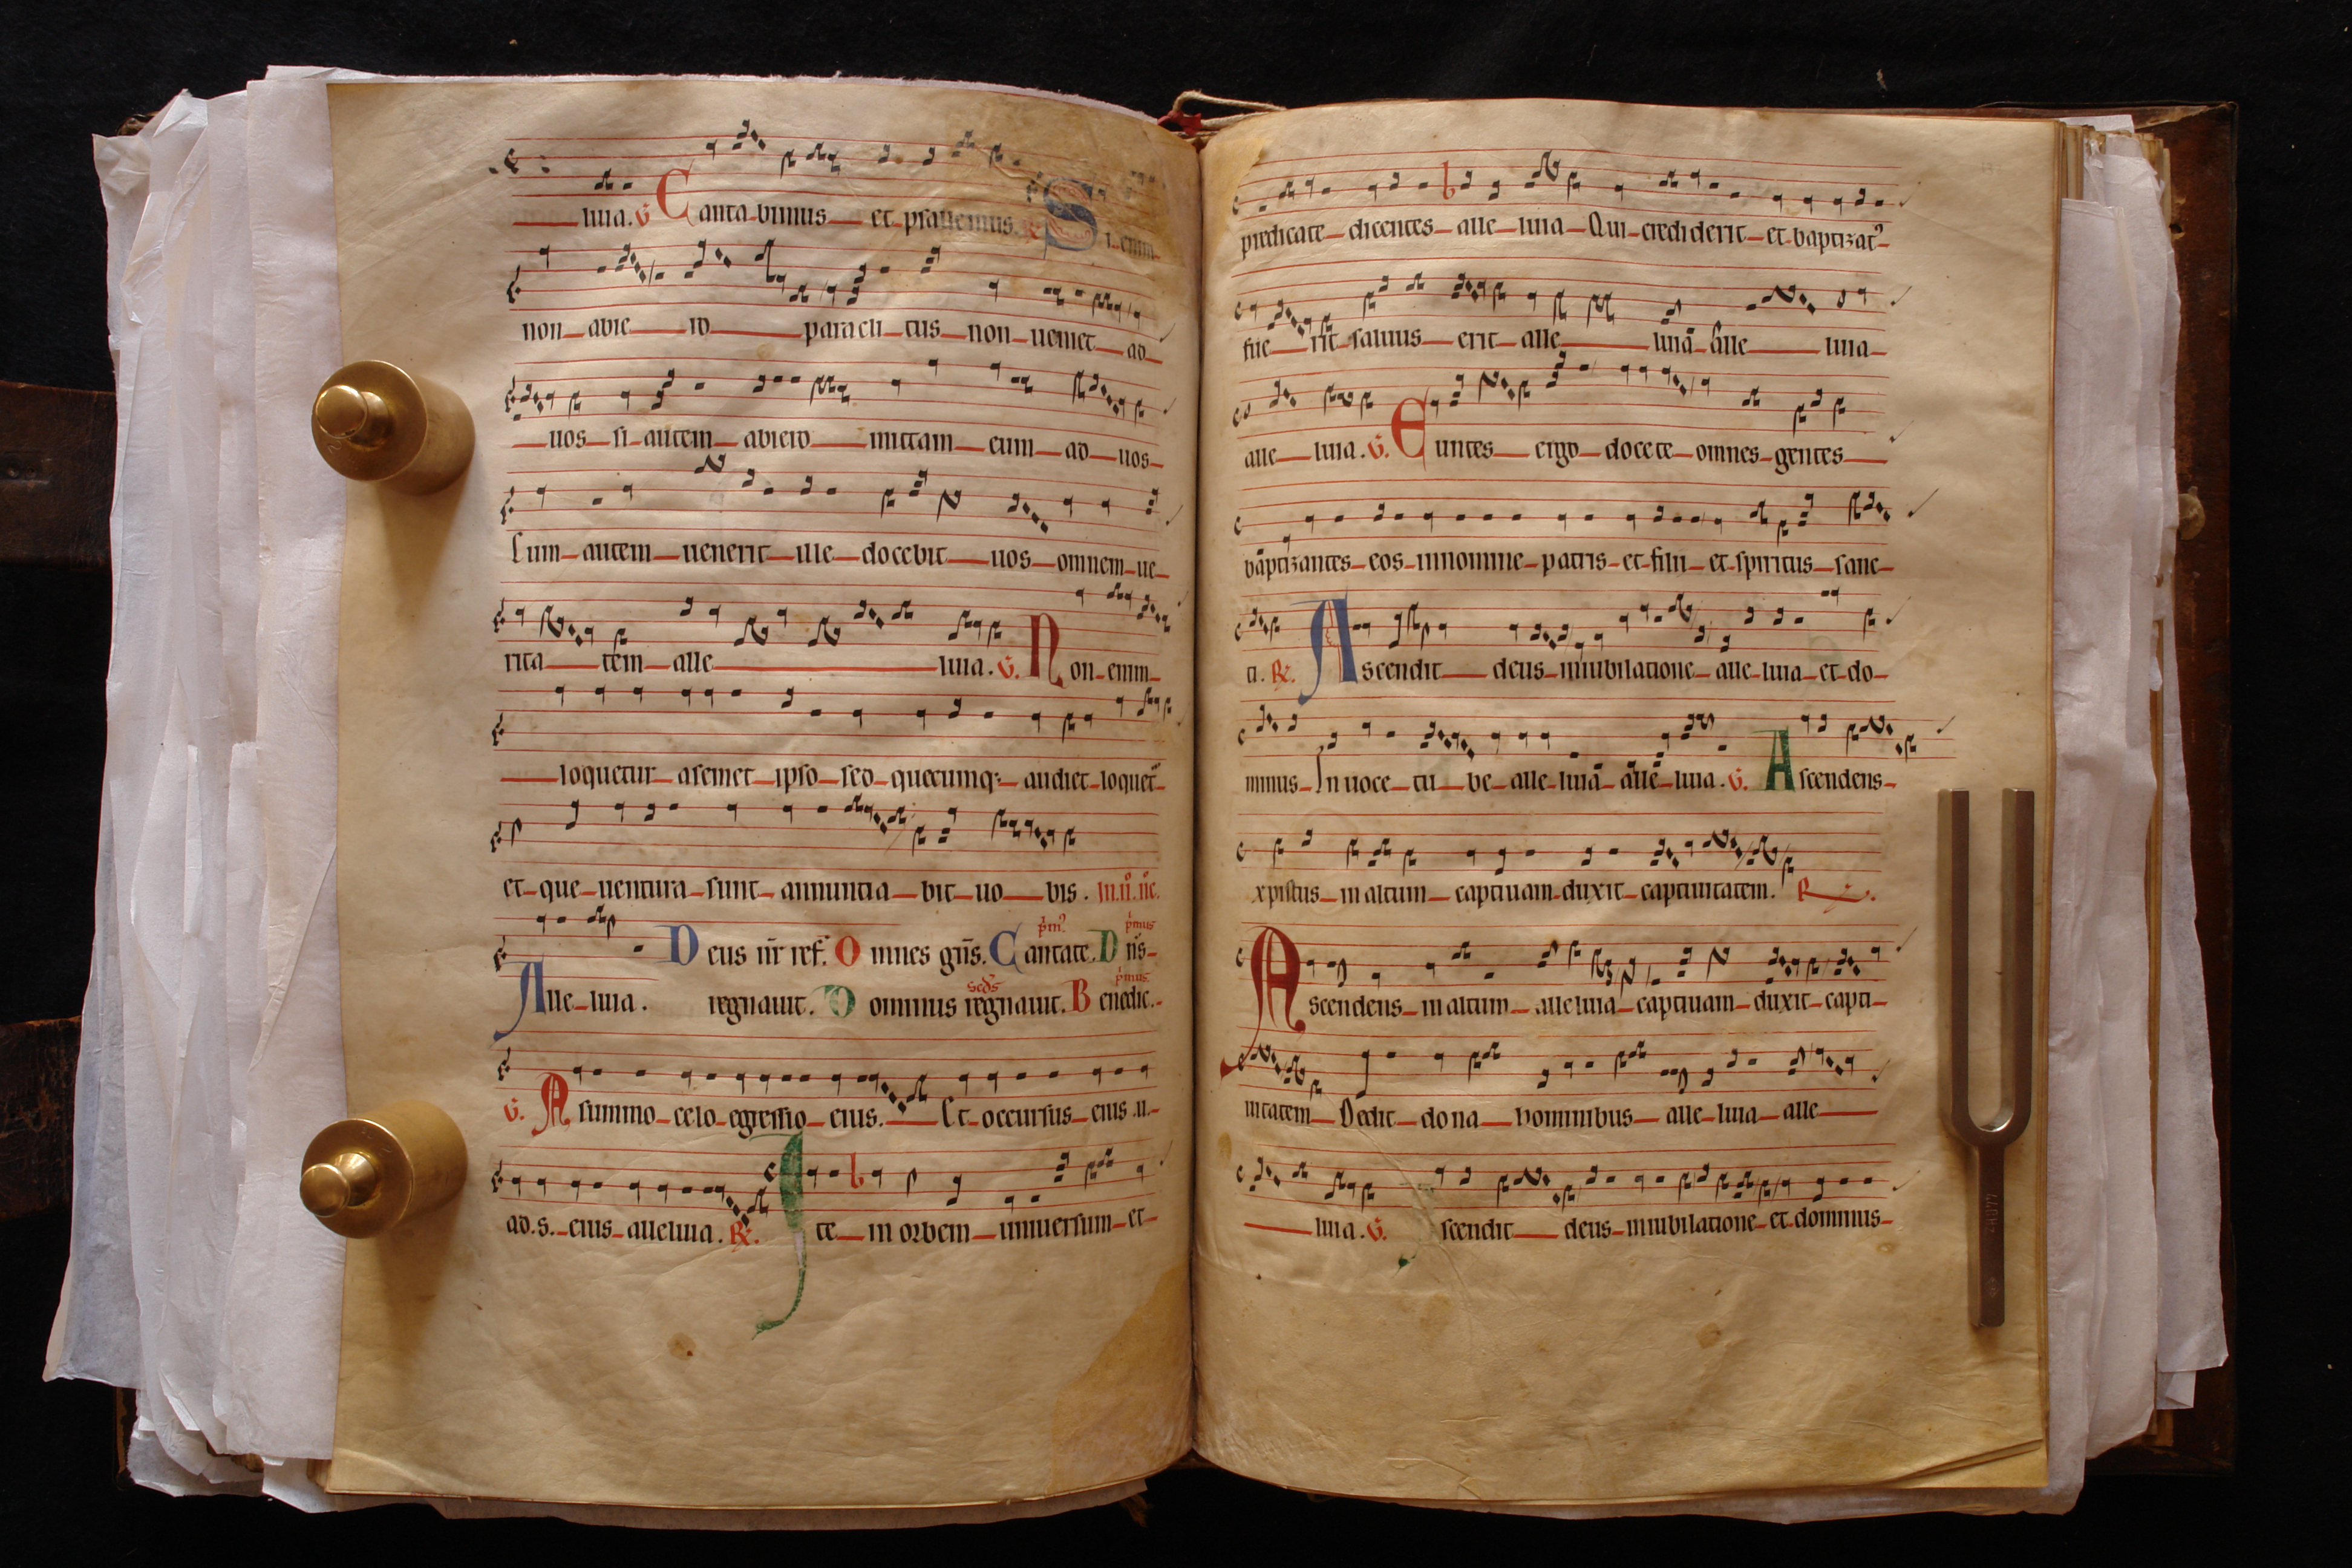 luia. V. Cantabimus et psallemus. R. Si enim
non abiero paraclitus non ueniet ad
uos si autem abiero mittam eum ad uos
Cum autem uenerit ille docebit uos omnem ue
ritatem alleluia. V. Non enim
loquetur a semet ipso sed quecumq; audiet loquet᷑
et que uentura sunt annuntiabit uobis. In .ii. nc̄.
Deus nr̄ ref. Omnes gn̄s. Cantate. Dn̄s
Alleluia. regnauit. Dominus regnauit. Benedic.
V. A summo celo egressio eius. Et occursus eius u.
ad .s. eius alleluia. R. Ite in orbem uniuersum et
predicate dicentes alleluia Qui crediderit et baptizat᷑
fuerit saluus erit alleluia alleluia
alleluia. V. Euntes ergo docete omnes gentes
baptizantes eos innomine patris et filii et spiritus sanc
ti. R. Ascendit deus iniubilatione alleluia et do
minus In uoce tube alleluia alleluia. V. Ascendens
xpistus in altum captiuam duxit captiuitatem. R.
Ascendens in altum alleluia captiuam duxit capti
uitatem Dedit dona hominibus alleluia alle
luia. V. scendit deus iniubilatione et dominus